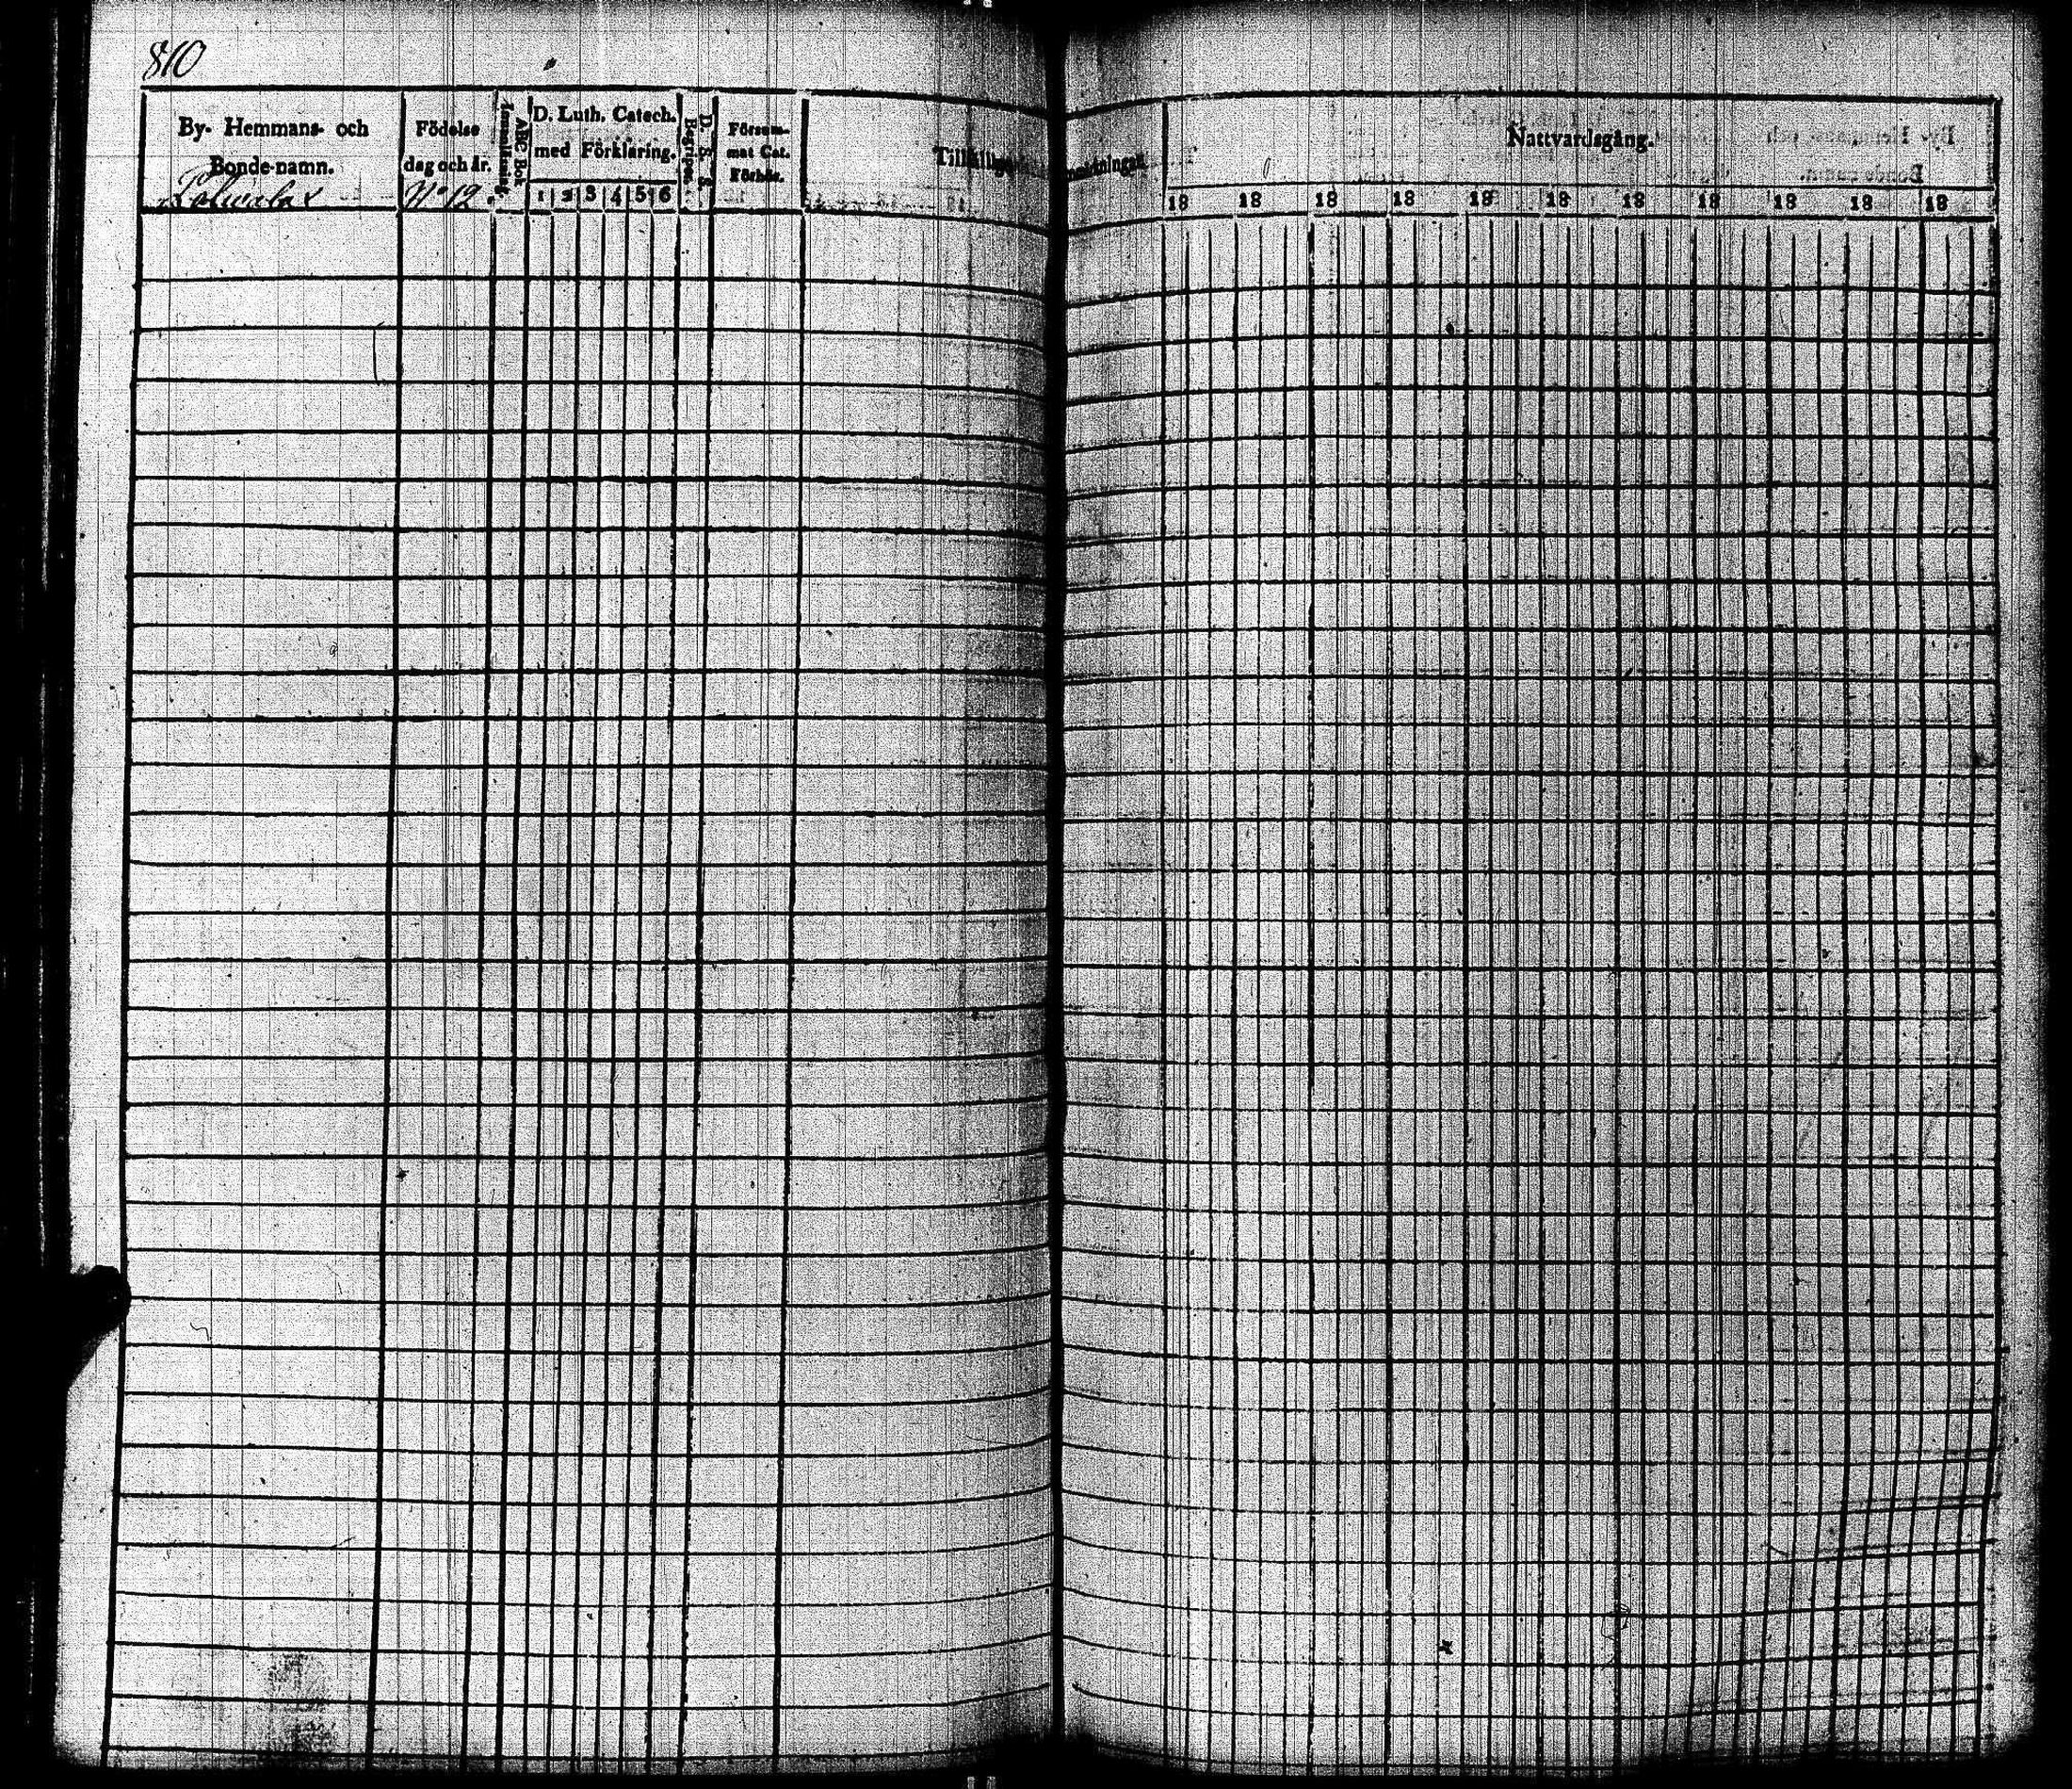 810
By- Hemmans- och
Bonde-namn.
Födelse
dag och år.
No 12
ABC Bok
Innanläsning.
D. Luth. Catech.
med Förklaring.
1 2 3 4 5 6
D. S. S.
Begrepet.
Försum-
mat Cat.
Förhör.
Tillfällige Anmärkningar.
Nattvardsgång.
18 18 18 18 18 18 18 18 18 18 18